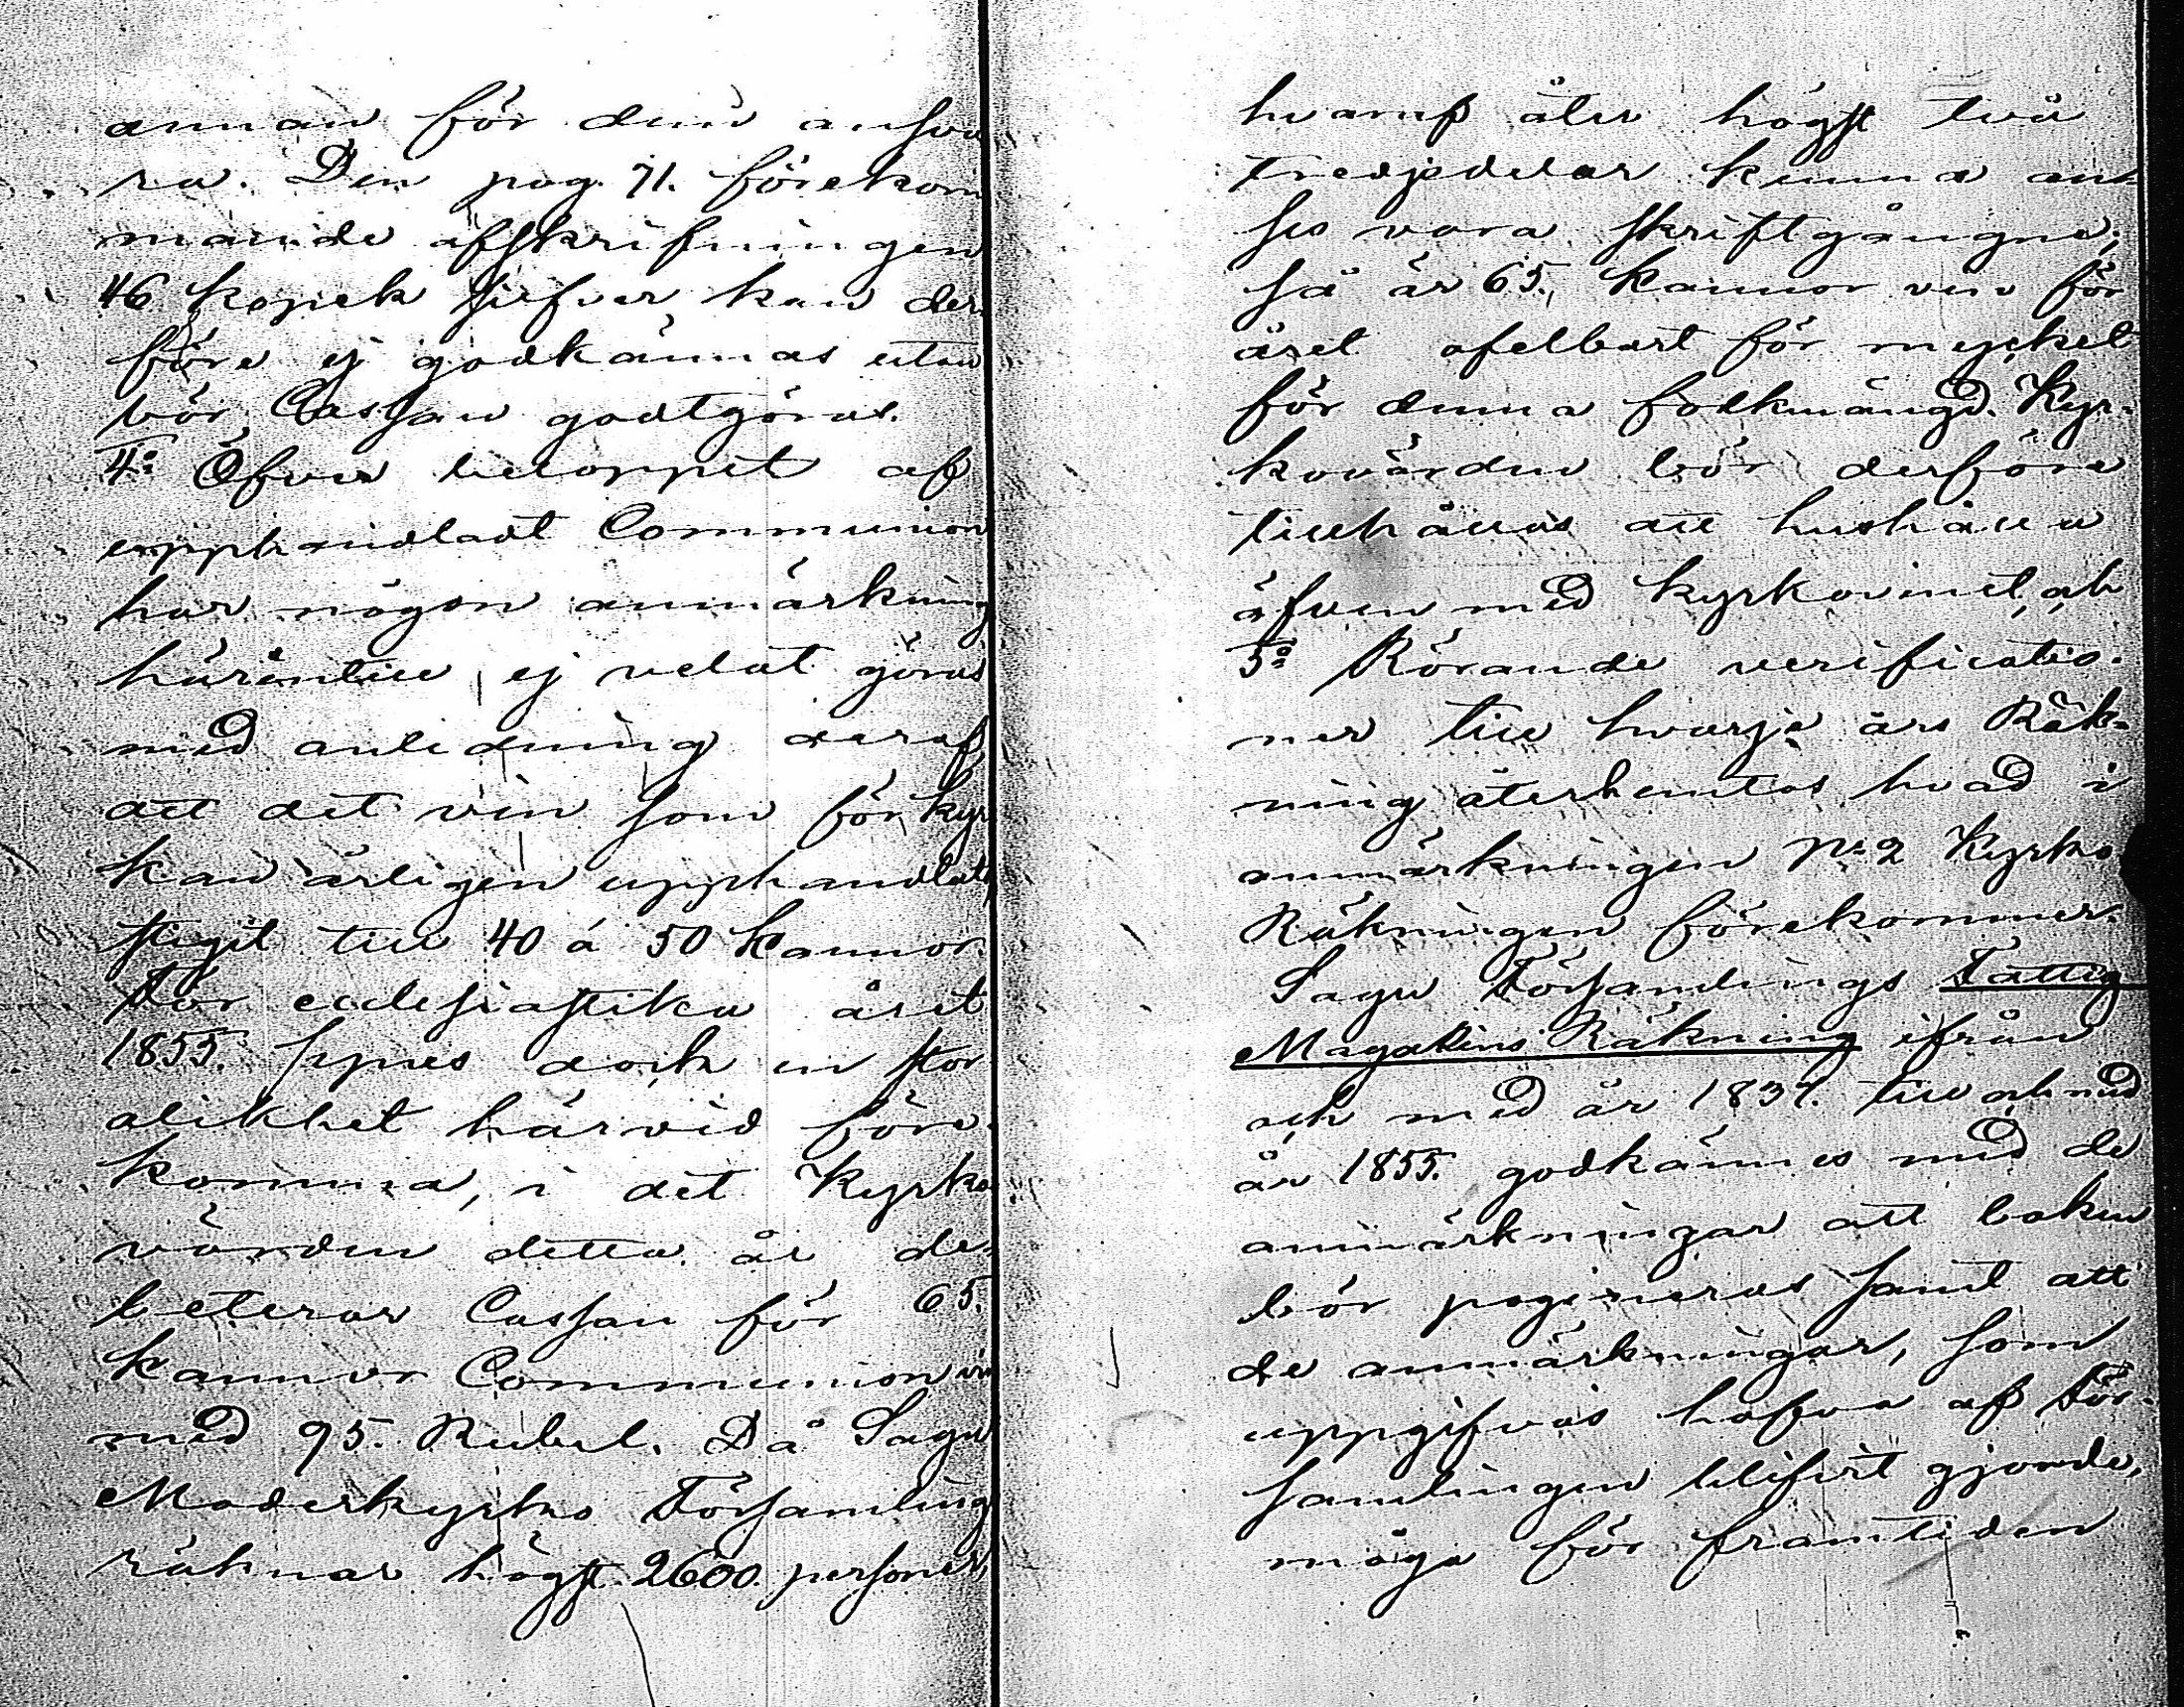 annan för dem ansva
ra. Den pag. 71. förekom
mande afskrifningen
46 kopek silfver kan der
före ej godkännas utan
bör Cassan godtgöras.
4:o Öfver beloppet af
upphandladt Communion
har någon anmärkning
härintill ej velat göras
med anledning deraf
att det vin som för kyr
kan årligen upphandlats
stigit till 40 á 50 kannor.
För ecclesiastika året
1855. synes dock en stor
olikhet härvid före
komma, i det Kyrko
värden detta år de
beterar Cassan för 65.
kannor Communion vin
med 95. Rubel. Då Sagu
Moderkyrko Församling
räknar högst 2600. personer,
hvaraf åter högst två
tredjedelar kunna an=
ses vara skriftgångne;
så är 65. kannor vin för
året ofelbart för mycket
för denna folkmängd. Kyr=
kovärden bör derföre
tillhållas att hushålla
äfven med kyrkovinet, och
5:o Rörande verificatio=
ner till hvarje års Räk=
ning återhemtas hvad i
anmärkningen N:o 2 Kyrko
Räkningen förekommer.
Sagu Församlings Fattig
Magasins Räkning ifrån
och med år 1837. till och med
år 1855. godkännes med de
anmärkningar att boken
bör pagineras samt att
de anmärkningar, som
uppgifvas hafva af För=
samlingen blifvit gjorde,
måga för framtiden